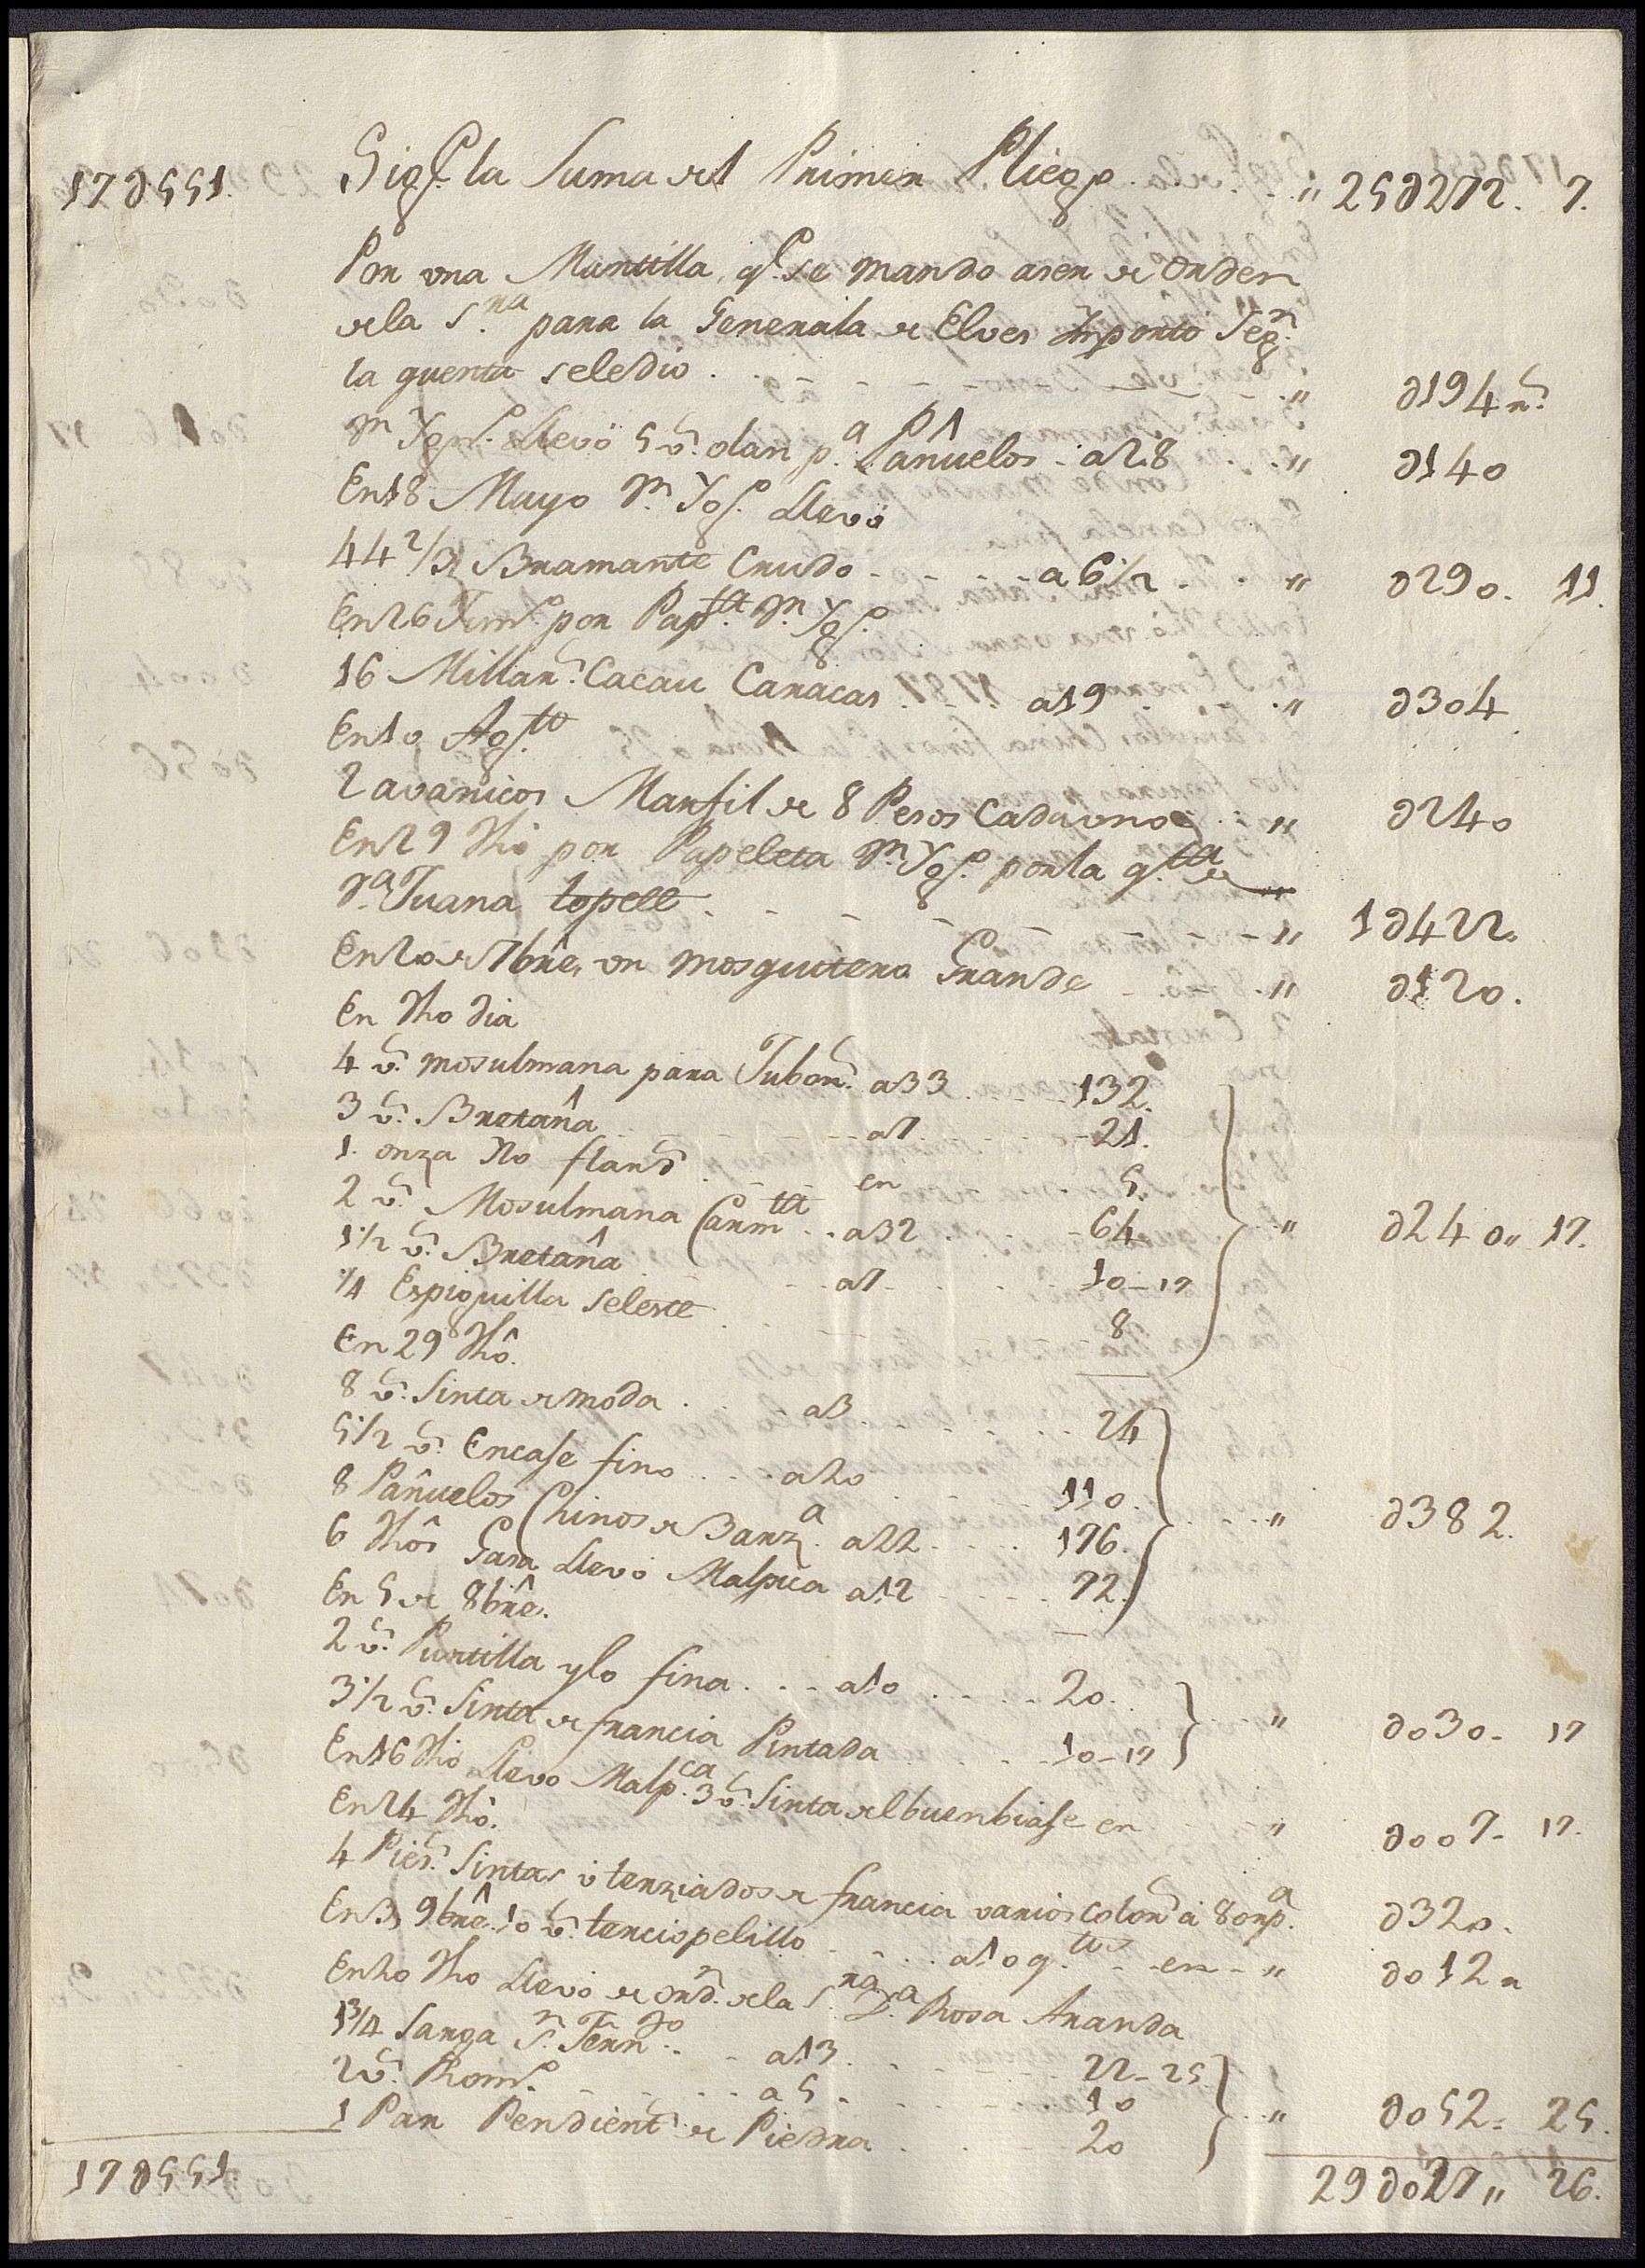 17∂551. Sigue la Suma del Primer Pliego . . . . . " 25∂272. 7.
Por una Mantilla, qe. se mando aser de Orden
dela S.ra para la Generala de Elves Inporto Segn.
la quenta seledio . . - - - - - - " ∂194 "
Dn. Yph. Llevò 5 vs. olan p.a Pañuelos . a28 . . " ∂140
En18 Mayo Dn. Jph. Llevò
44 2/3 Bramante Crudo - - - - a 6 1/2 . . " ∂290. 11.
En26 por Pap.ta Dn. Jph.
16 Millars. Cacau Caracas . . . a19 . . . " ∂304
En10 Ag.to
2 avanicos Marfil de 8 Pesos Cadauno . . " ∂240
En29 dho por Papeleta Dn. Jph. porla q.ta de
D.a Juana topete . - - - - - - - - " 1∂422.
En20 de 7bre, un mosquitero Grande - . " ∂120.
En dho dia
4 vs. mosulmana para Jubons. a33 . . . . 132.
3 vs. Bretaña . . - - - - a7 . . . . - 21.
1. onza Ilo flands . . - - en 5.
2 vs. Mosulmana Carm.ta . . a32 . . . - 64 " ∂240" 17.
1 1/2 vs. Bretaña . . - - a7 - . . . . 10-17
1/4 Espiguilla seleste . . - - - - 8
En 29 dhô.
8 vs. Sinta de moda . . . a3 . . . . . . 24
5 1/2 vs. Encase fino . . . a20 . . . . . 110.
8 Pañuelos Chinos de Barz.a a22 . . . . 176. . . . " ∂382.
6 dhôs Gasa Llevò Malpica a12 . . . . 72.
En 5 de 8bre.
2 vs. Puntilla ylo fina . . - a10 . . . . 20.
3 1/2 vs. Sinta de francia Pintada . . . . 10-17 . . . " ∂030- 17
En16 dho Llevo Malp.ca 3 vs. Sinta del buenbiase en . - - " ∂007- 17.
En24 dhô.
4 Pies. Sintas ò terziados de francia varios colors à 80 rp.a ∂320.
En3, 9bre. 10 vs. terciopelillo . . . . a10 q.tos . . en - " ∂012 "
En20 dho Llevò de ordn. dela S.ra D.a Rosa Aranda
1 3/4 Sarga Sn. Fernn.do . . - a13 . . . . . 22-25
2 vs. . . . . a5 . . . . . 10 . . " ∂052= 25.
1 Par Pendients de Piedra . . . - 20
17∂551. 29∂027" 26.